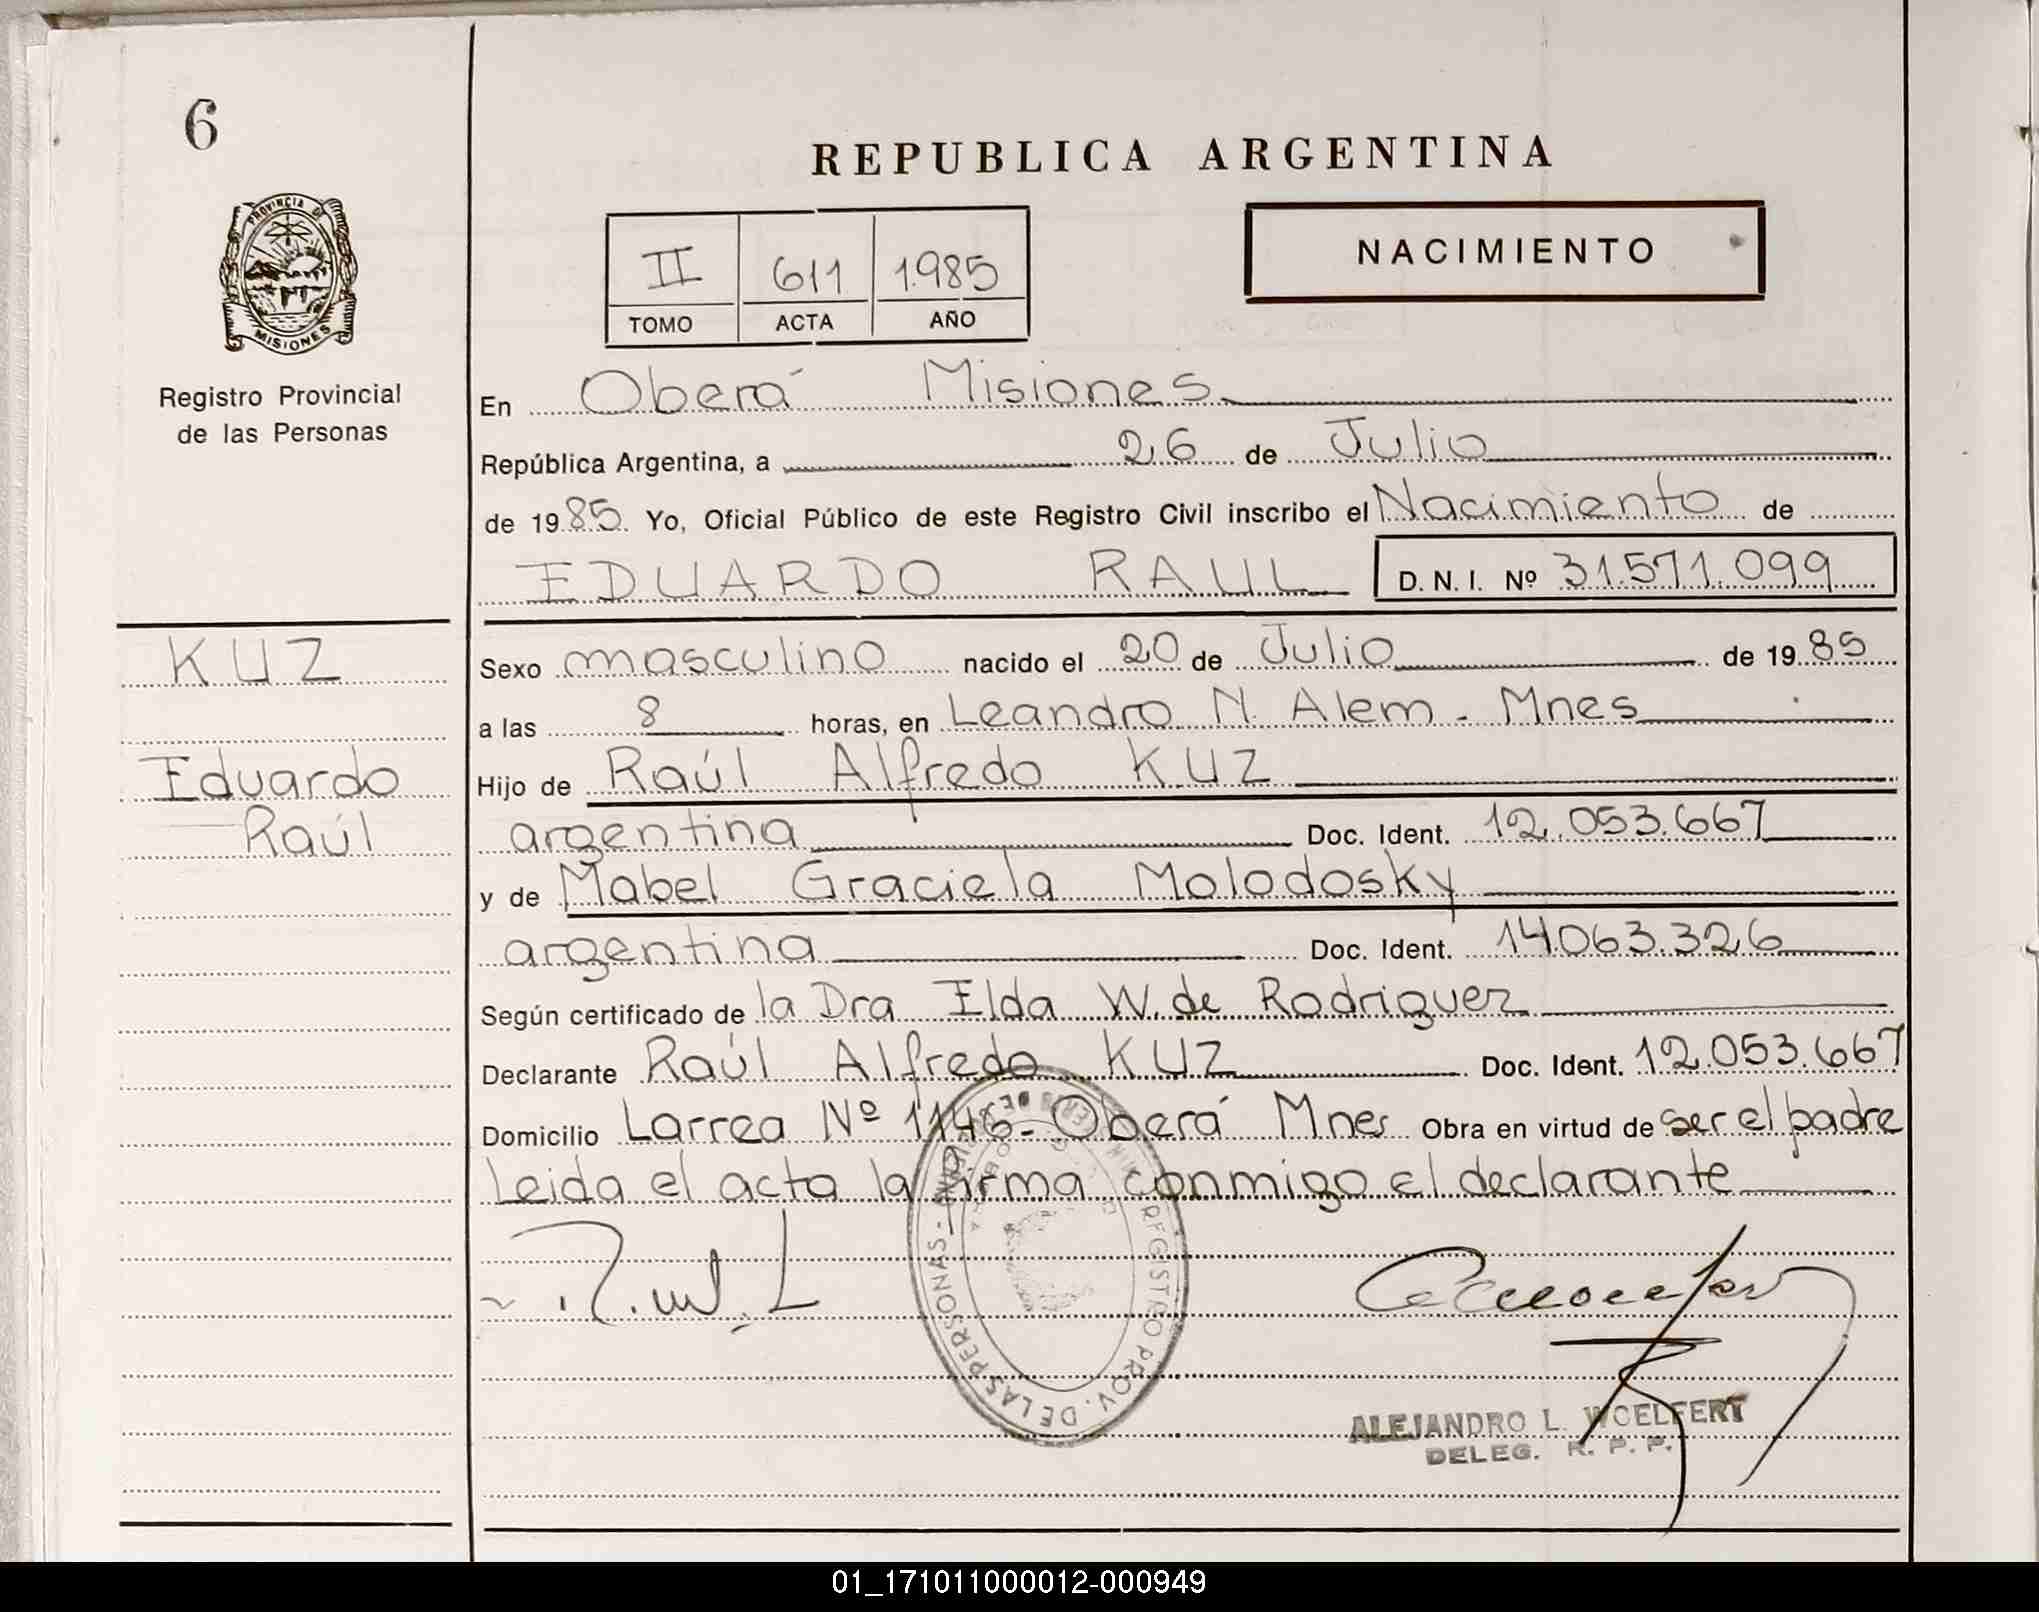 6
REPUBLICA ARGENTINA
PROVINCIA DE
MISIONES
II 611 1.985
TOMO ACTA AÑO
NACIMIENTO
Registro Provincial
de las Personas
En Oberá Misiones
República Argentina, a 26 de Julio
de 1985. Yo, Oficial Público de este Registro Civil inscribo el Nacimiento de
EDUARDO RAUL D. N. I. Nº 31.571.099
KUZ
Eduardo
Raúl
Sexo masculino nacido el 20 de Julio de 1985
a las 8 horas, en Leandro N. Alem - Mnes
Hijo de Raúl Alfredo KUZ
argentina Doc. Ident. 12.053.667
y de Mabel Graciela Molodosky
argentina Doc. Ident. 14.063.326
Según certificado de la Dra Elda W. de Rodriguez
Declarante Raúl Alfredo KUZ Doc. Ident. 12.053.667
Domicilio Larrea Nº 1146 - Oberá Mnes Obra en virtud de ser el padre
Leida el acta la firma conmigo el declarante
REGISTRO PROV. DE LAS PERSONAS -
ALEJANDRO L. WOELFERT
DELEG. R. P. P.
01_171011000012-000949